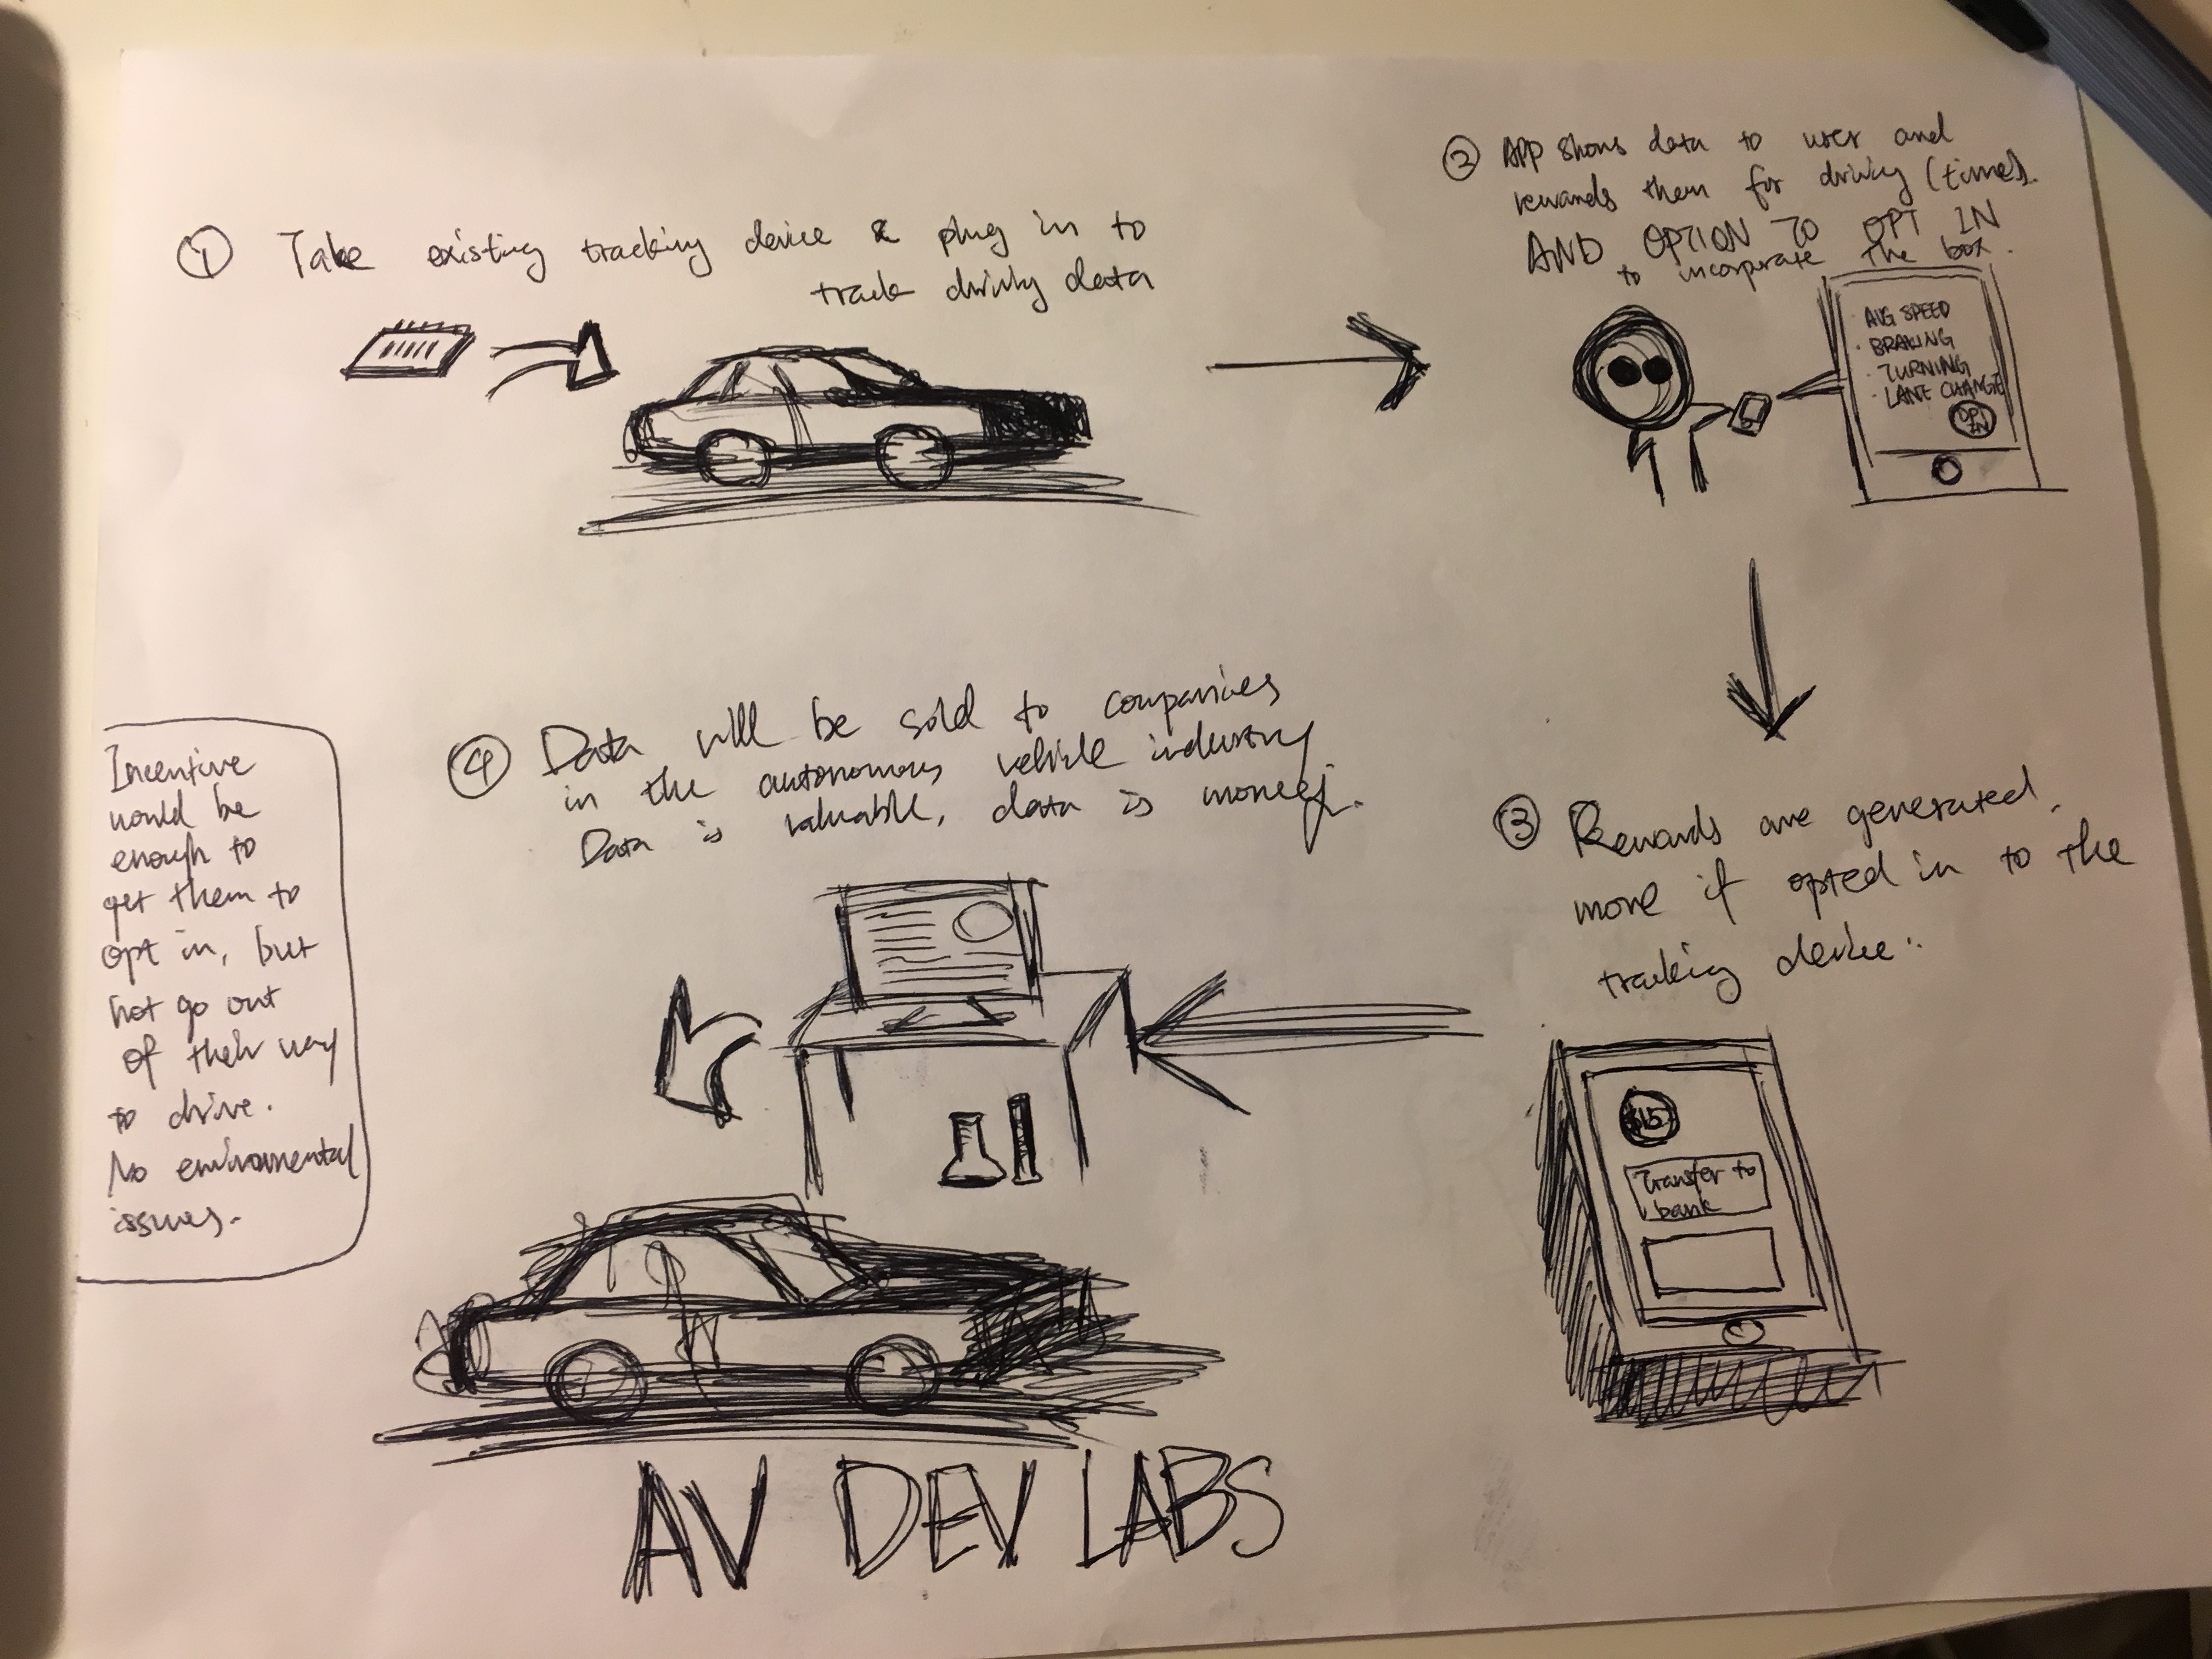 ① Take existing tracking device & plug in to
track driving data
② APP shows data to user and
rewards them for driving (time).
AND OPTION TO OPT IN
to incorporate the box.
AVG SPEED
· BRAKING
· TURNING
· LANE CHANGE
OPT
IN
③ Rewards are generated,
more if opted in to the
tracking device.
$15
Transfer to
bank
④ Data will be sold to companies
in the autonomous vehicle industry
Data is valuable, data is money.
AV DEV LABS
Incentive
would be
enough to
get them to
opt in, but
not go out
of their way
to drive.
No enviromental
issues.